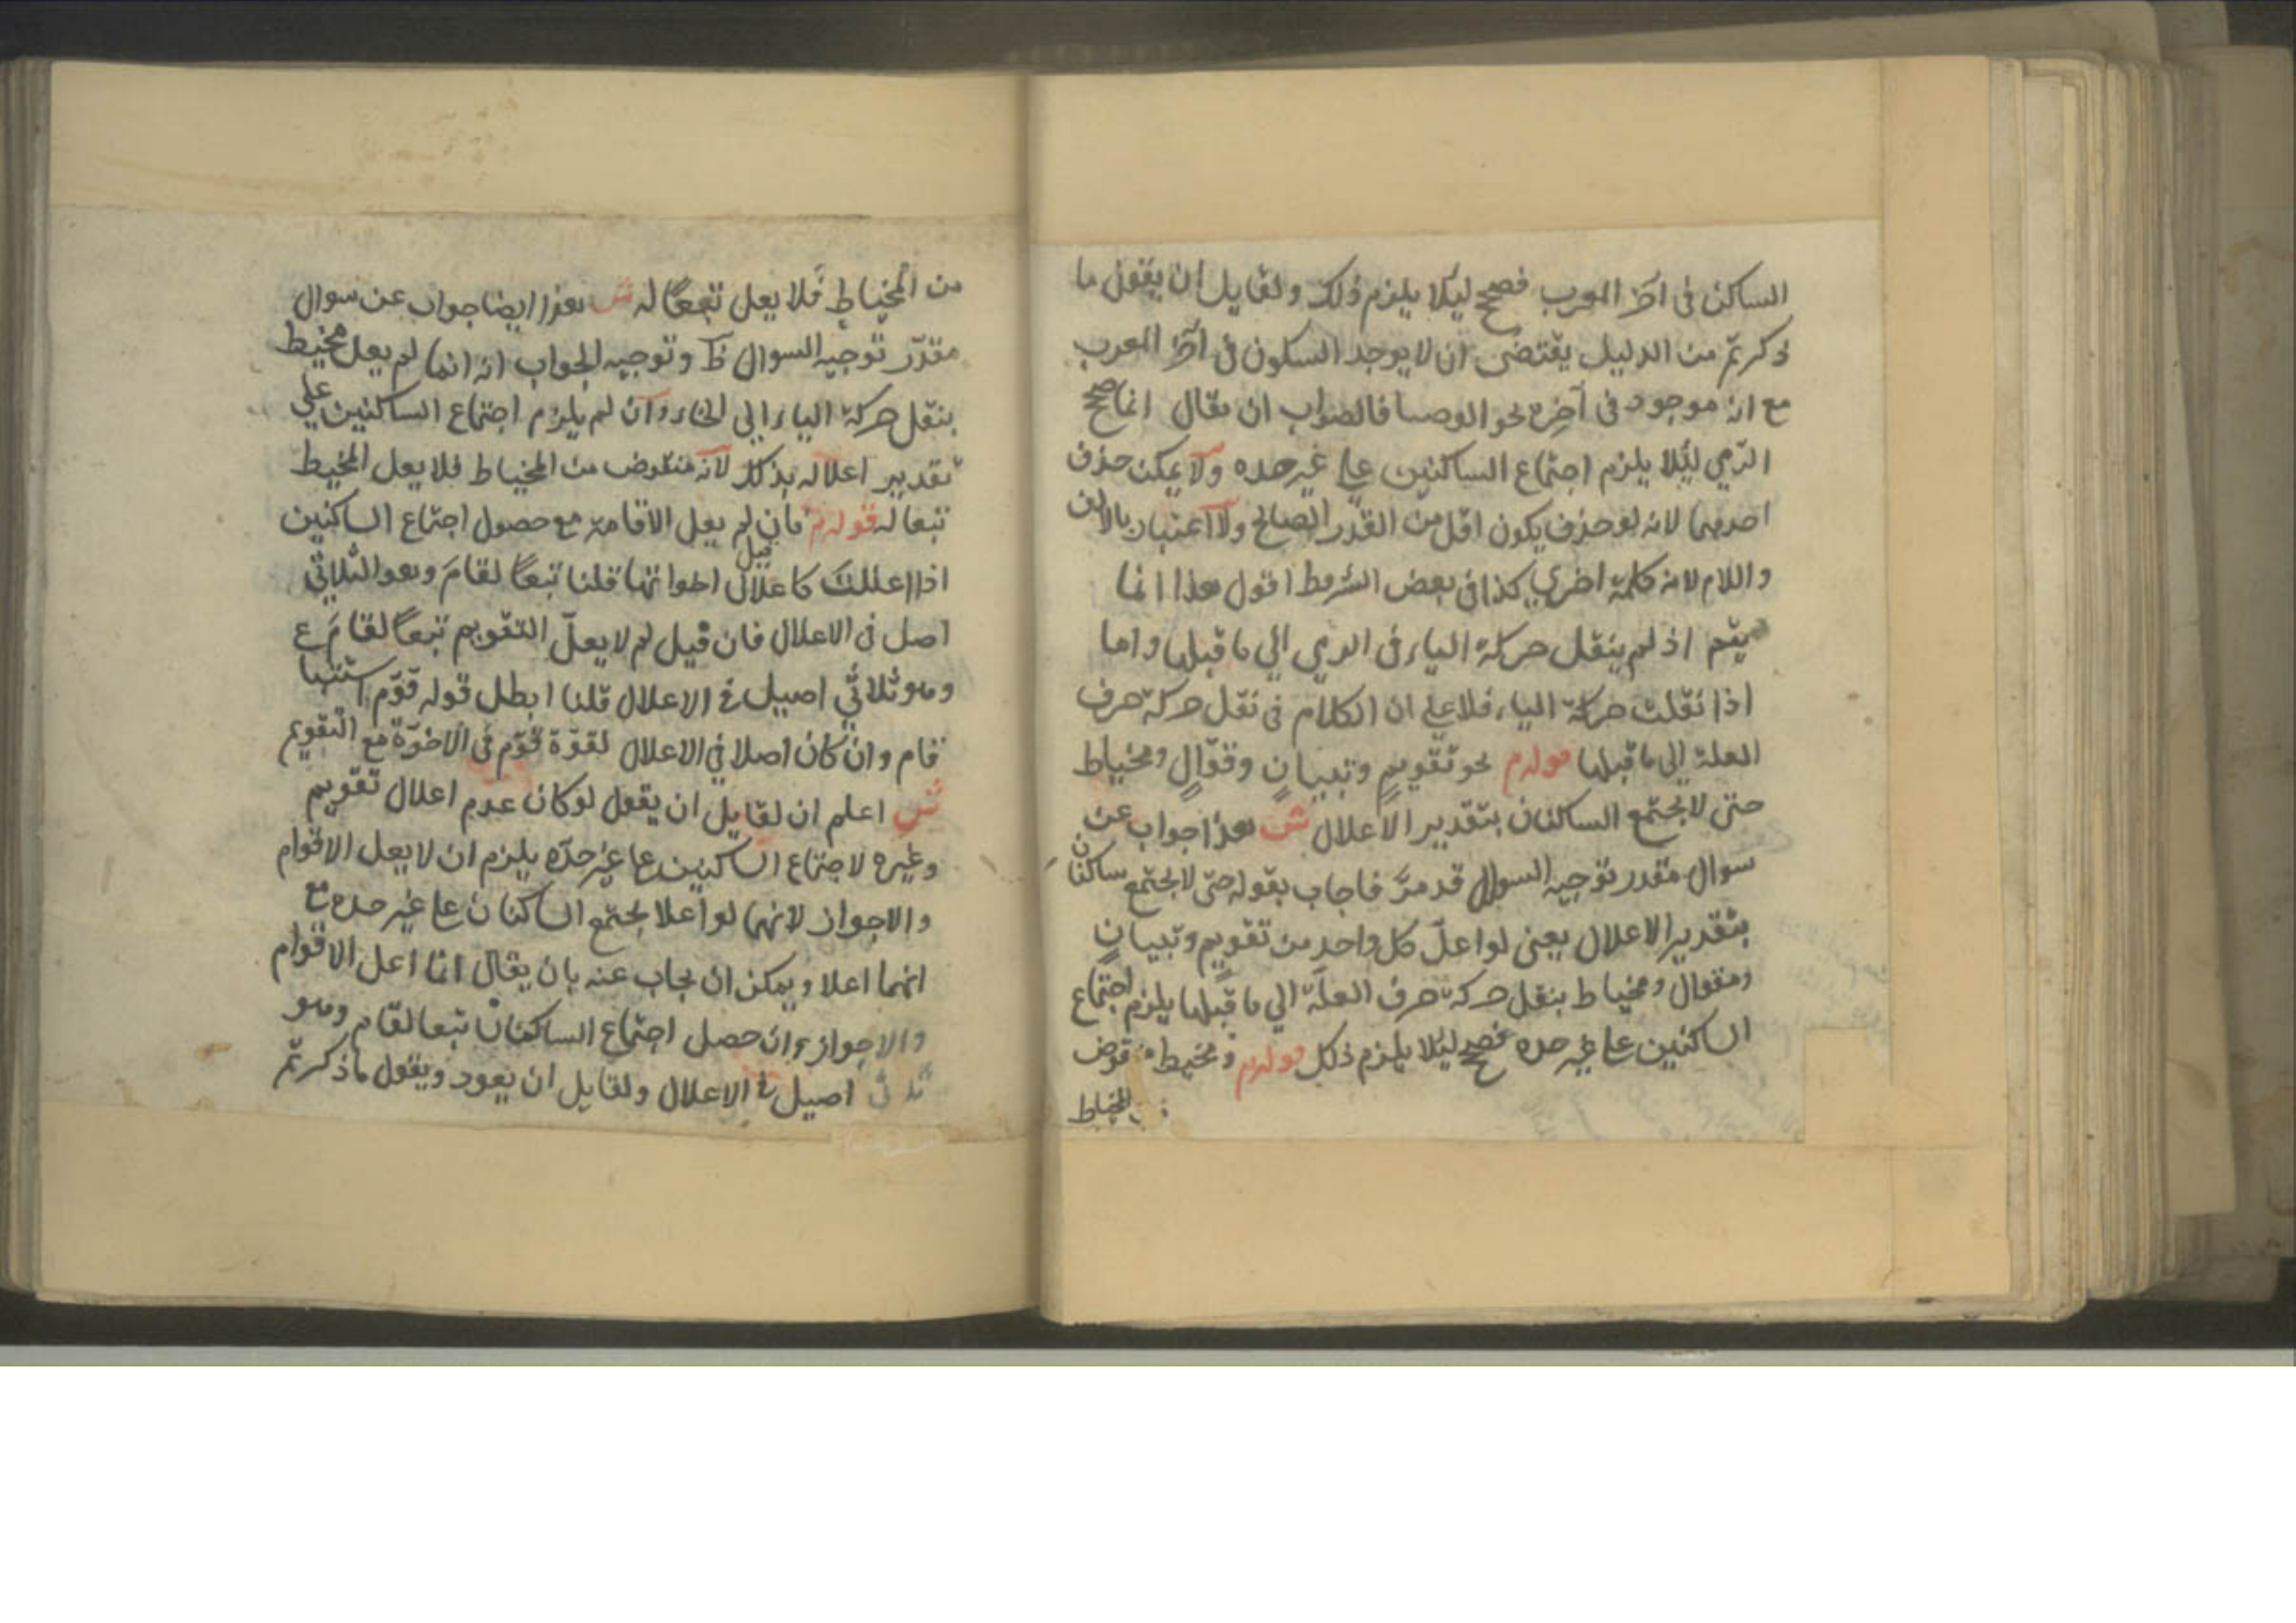 الساكن فى اخر المعرب فصحح ليلا يلزم ذلك ولقايل ان يقول ما
ذكرتم من الدليل يقتضى ان لا يوجد السكون فى آخر المعرب
مع انه موجود فى آخره نحو العصا فالصواب ان يقال انما صحح
الرمي ليلا يلزم اجتماع الساكنين على غير حده ولا يمكن حذف
احديهما لانه لو حذف يكون اقل من القدر الصالح ولا اعتبار بالالف
واللام لانه كلمة اخرى كذا فى بعض الشروط اقول هذا انما
يتم اذ لم ينقل حركة الياء فى الرمي الي ما قبلها واما
اذا نقلت حركة الياء فلا على ان الكلام فى نقل حركة حرف
العلة الى ما قبلها قوله م نحو تقويم وتبيان وقوال ومخياط
حتى لا يجتمع الساكنان بتقدير الاعلال ش هذا جواب عن
سوال مقدر توجيه السوال قد مر فاجاب بقوله حتى لا يجتمع ساكنان
بتقدير الاعلال يعنى لو اعل كل واحد من تقويم وتبيان
ومقوال ومخياط بنقل حركة حرف العلة الي ما قبلها يلزم اجتماع
الساكنين على غير حده فصحح ليلا يلزم ذلك قوله م ومخيط منقوض
المخياط
من المخياط فلا يعل تبعا له ش هذا ايضا جواب عن سوال
مقدر توجيه السوال ظ وتوجيه الجواب انه انما لم يعل مخيط
بنقل حركة الياء الى الخاء وان لم يلزم اجتماع الساكنين علي
تقدير اعلاله بذلك لانه منقوض من المخياط فلا يعل المخيط
تبعا له قوله م فان قيل لم يعل الاقامة مع حصول اجتماع الساكنين
اذا اعللت كاعلال اخواتها قلنا تبعا لقام وهو الثلاثي
اصل فى الاعلال فان قيل لم لا يعل التقويم تبعا لقام ع
وهو ثلاثي اصيل فى الاعلال قلنا ابطل قوله قوم استتباع
قام وان كان اصلا في الاعلال لقوة قوم فى الاخوة مع التقويم
ش اعلم ان لقايل ان يقول لو كان عدم اعلال تقويم
وغيره لاجتماع الساكنين على غير حده يلزم ان لا يعل الاقوام
والاجواز لانهما لو اعلا يجتمع الساكنان على غير حده مع
انهما اعلا ويمكن ان يجاب عنه بان يقال انما اعل الاقوام
والاجواز وان حصل اجتماع الساكنان تبعا لقام وهو
ثلاثى اصيل فى الاعلال ولقايل ان يعود ويقول ما ذكرتم